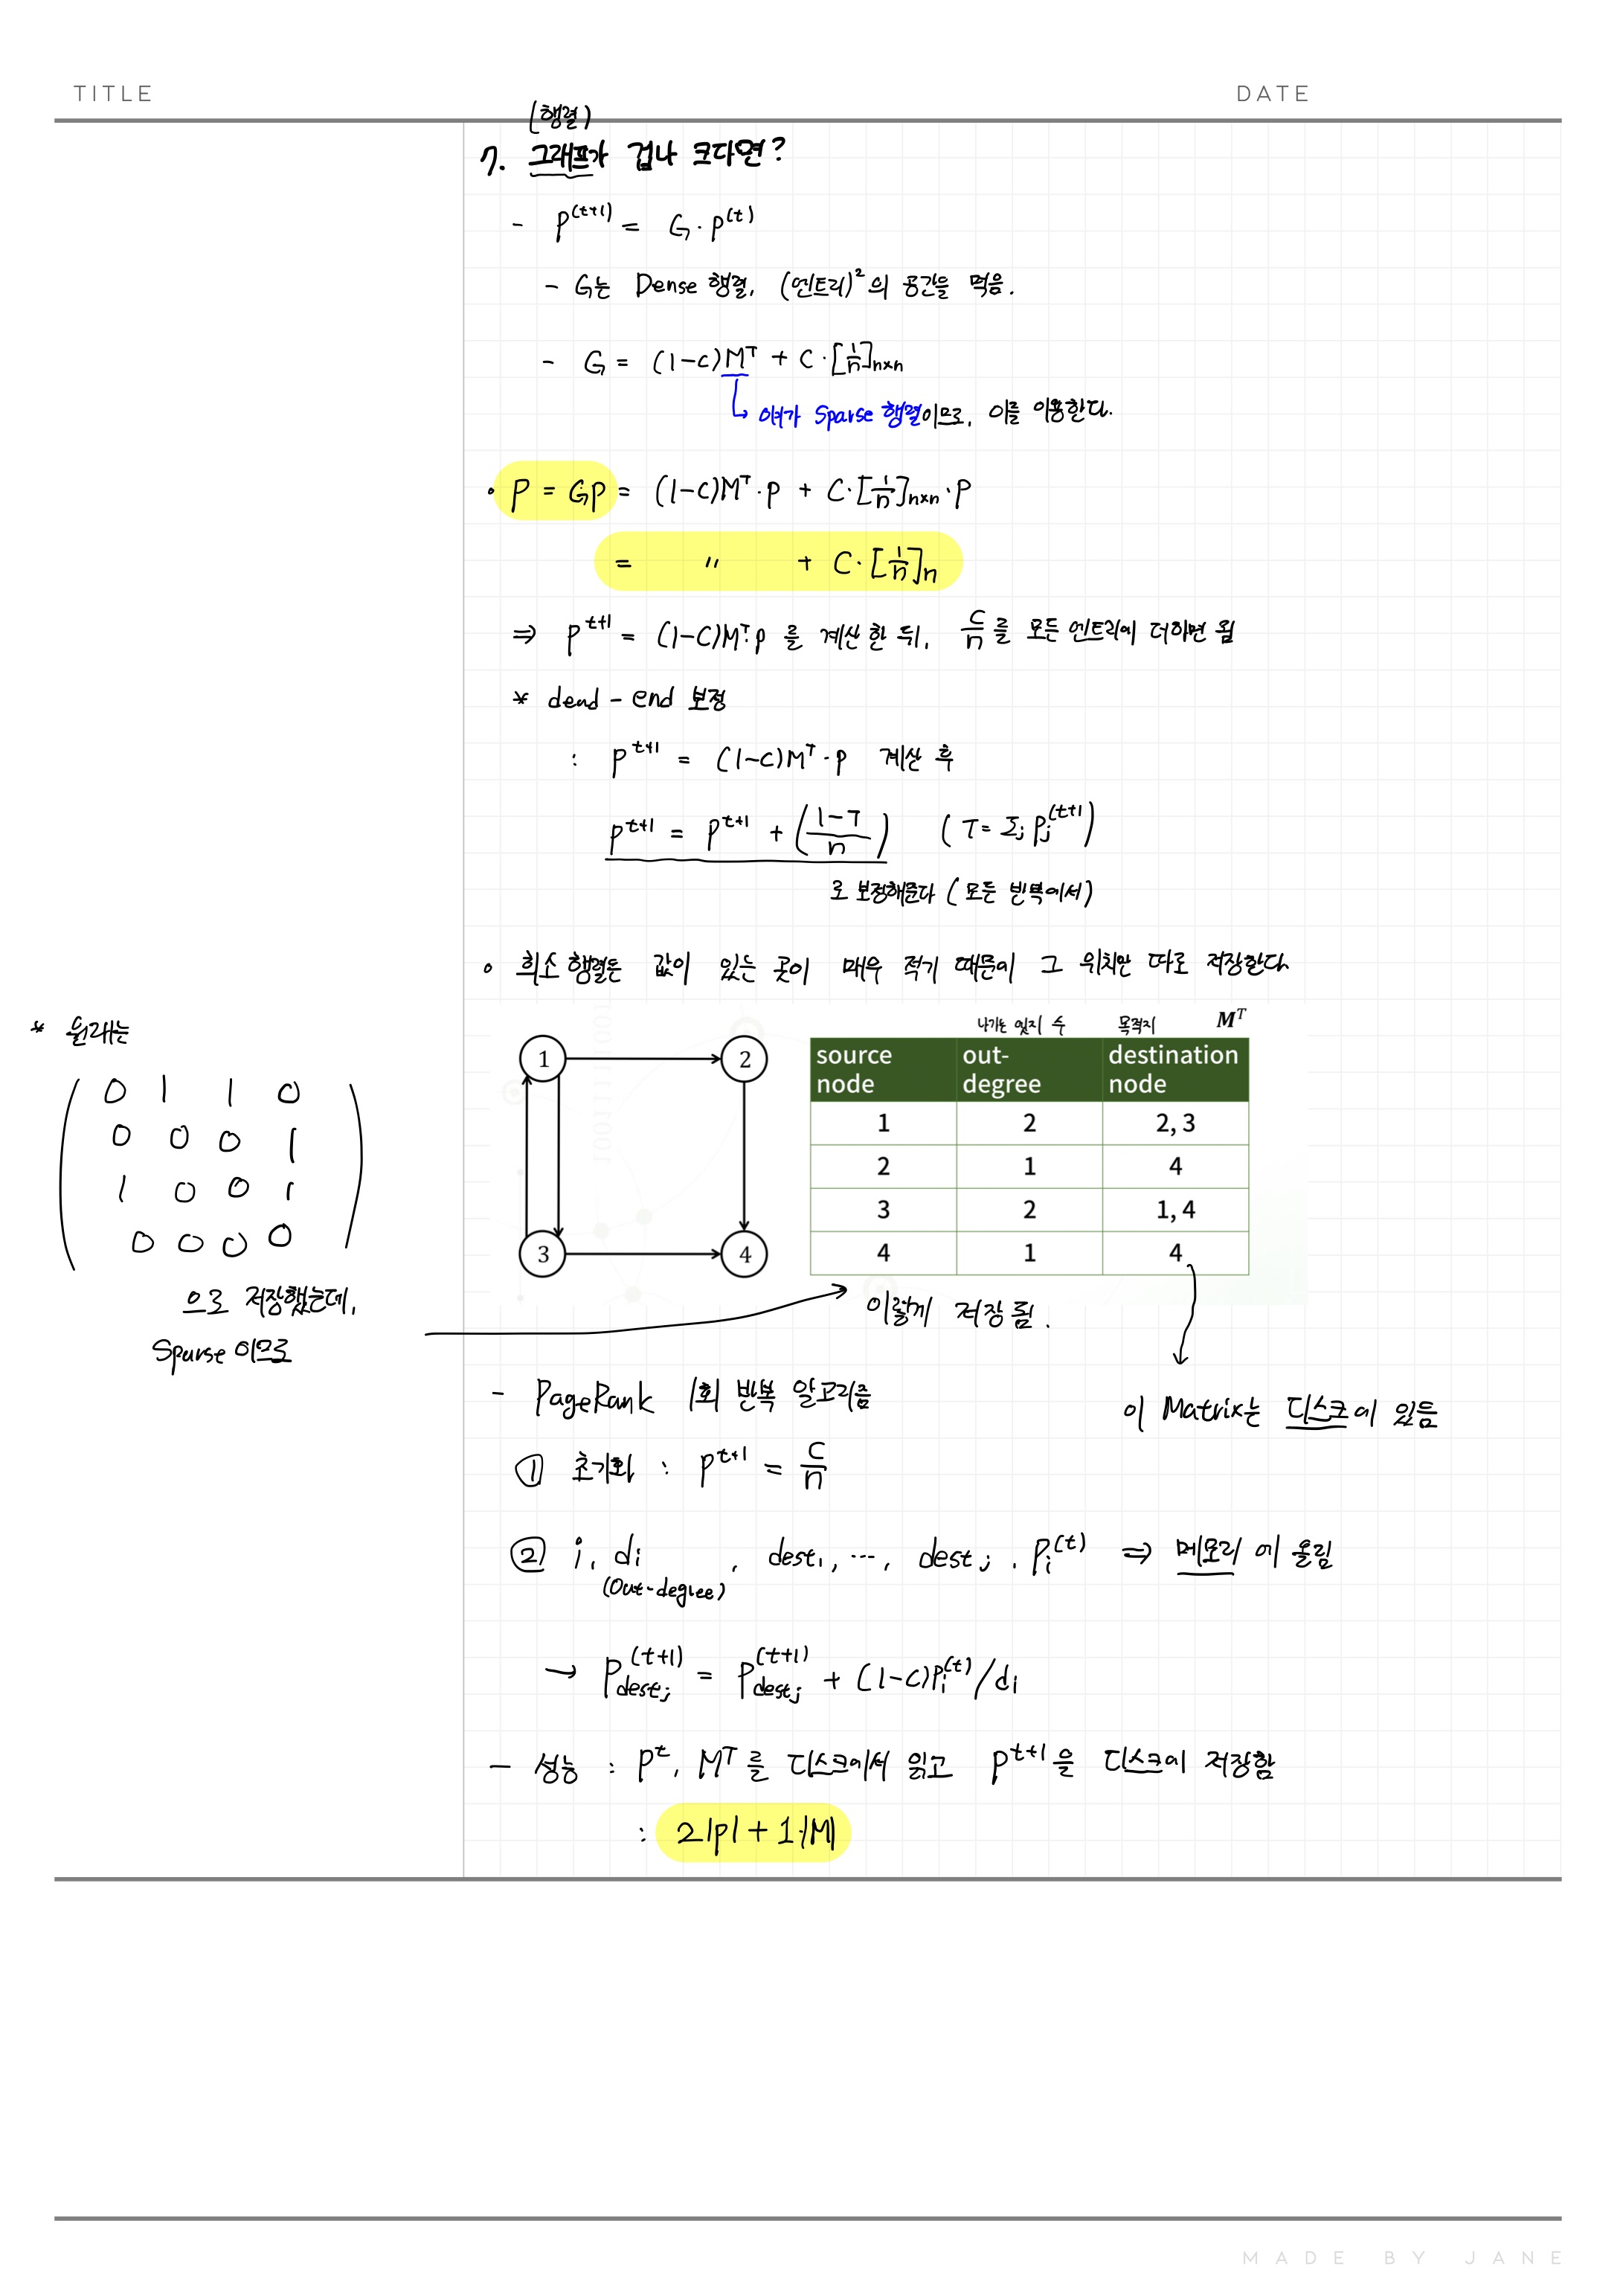 TITLE
DATE
(행렬)
7. 그래프가 겁나 크다면?
- P^(t+1) = G · P^(t)
- G는 Dense 행렬, (엔트리)²의 공간을 먹음.
- G = (1-c)M^T + C·[1/n]n×n
↳ 얘가 Sparse 행렬이므로, 이를 이용한다.
• P = Gp = (1-c)M^T · p + C·[1/n]n×n · P
= 〃 + C·[1/n]n
⇒ p^t+1 = (1-C)M^T·p 를 계산한 뒤, c/n를 모든 엔트리에 더하면 됨
* dead-end 보정
: p^t+1 = (1-c)M^T · p 계산 후
p^t+1 = p^t+1 + ((1-T)/n) (T = Σj Pj^(t+1))
로 보정해준다 (모든 반복에서)
∘ 희소 행렬은 값이 있는 곳이 매우 적기 때문에 그 위치만 따로 저장한다
* 원래는
0 1 1 0
0 0 0 1
1 0 0 1
0 0 0 0
으로 저장했는데,
Sparse 이므로
1 2
3 4
나가는 엣지 수 목적지 M^T
source node out-degree destination node
1 2 2, 3
2 1 4
3 2 1, 4
4 1 4
이렇게 저장 됨.
이 Matrix는 디스크에 있음
- PageRank 1회 반복 알고리즘
① 초기화 : p^t+1 = c/n
② i, di, dest1, ···, destj, Pi^(t) ⇒ 메모리에 올림
(out-degree)
→ Pdestj^(t+1) = Pdestj^(t+1) + (1-c)Pi^(t)/di
- 성능 : p^t, M^T를 디스크에서 읽고 p^t+1을 디스크에 저장함
: 2|p| + 1·|M|
MADE BY JANE